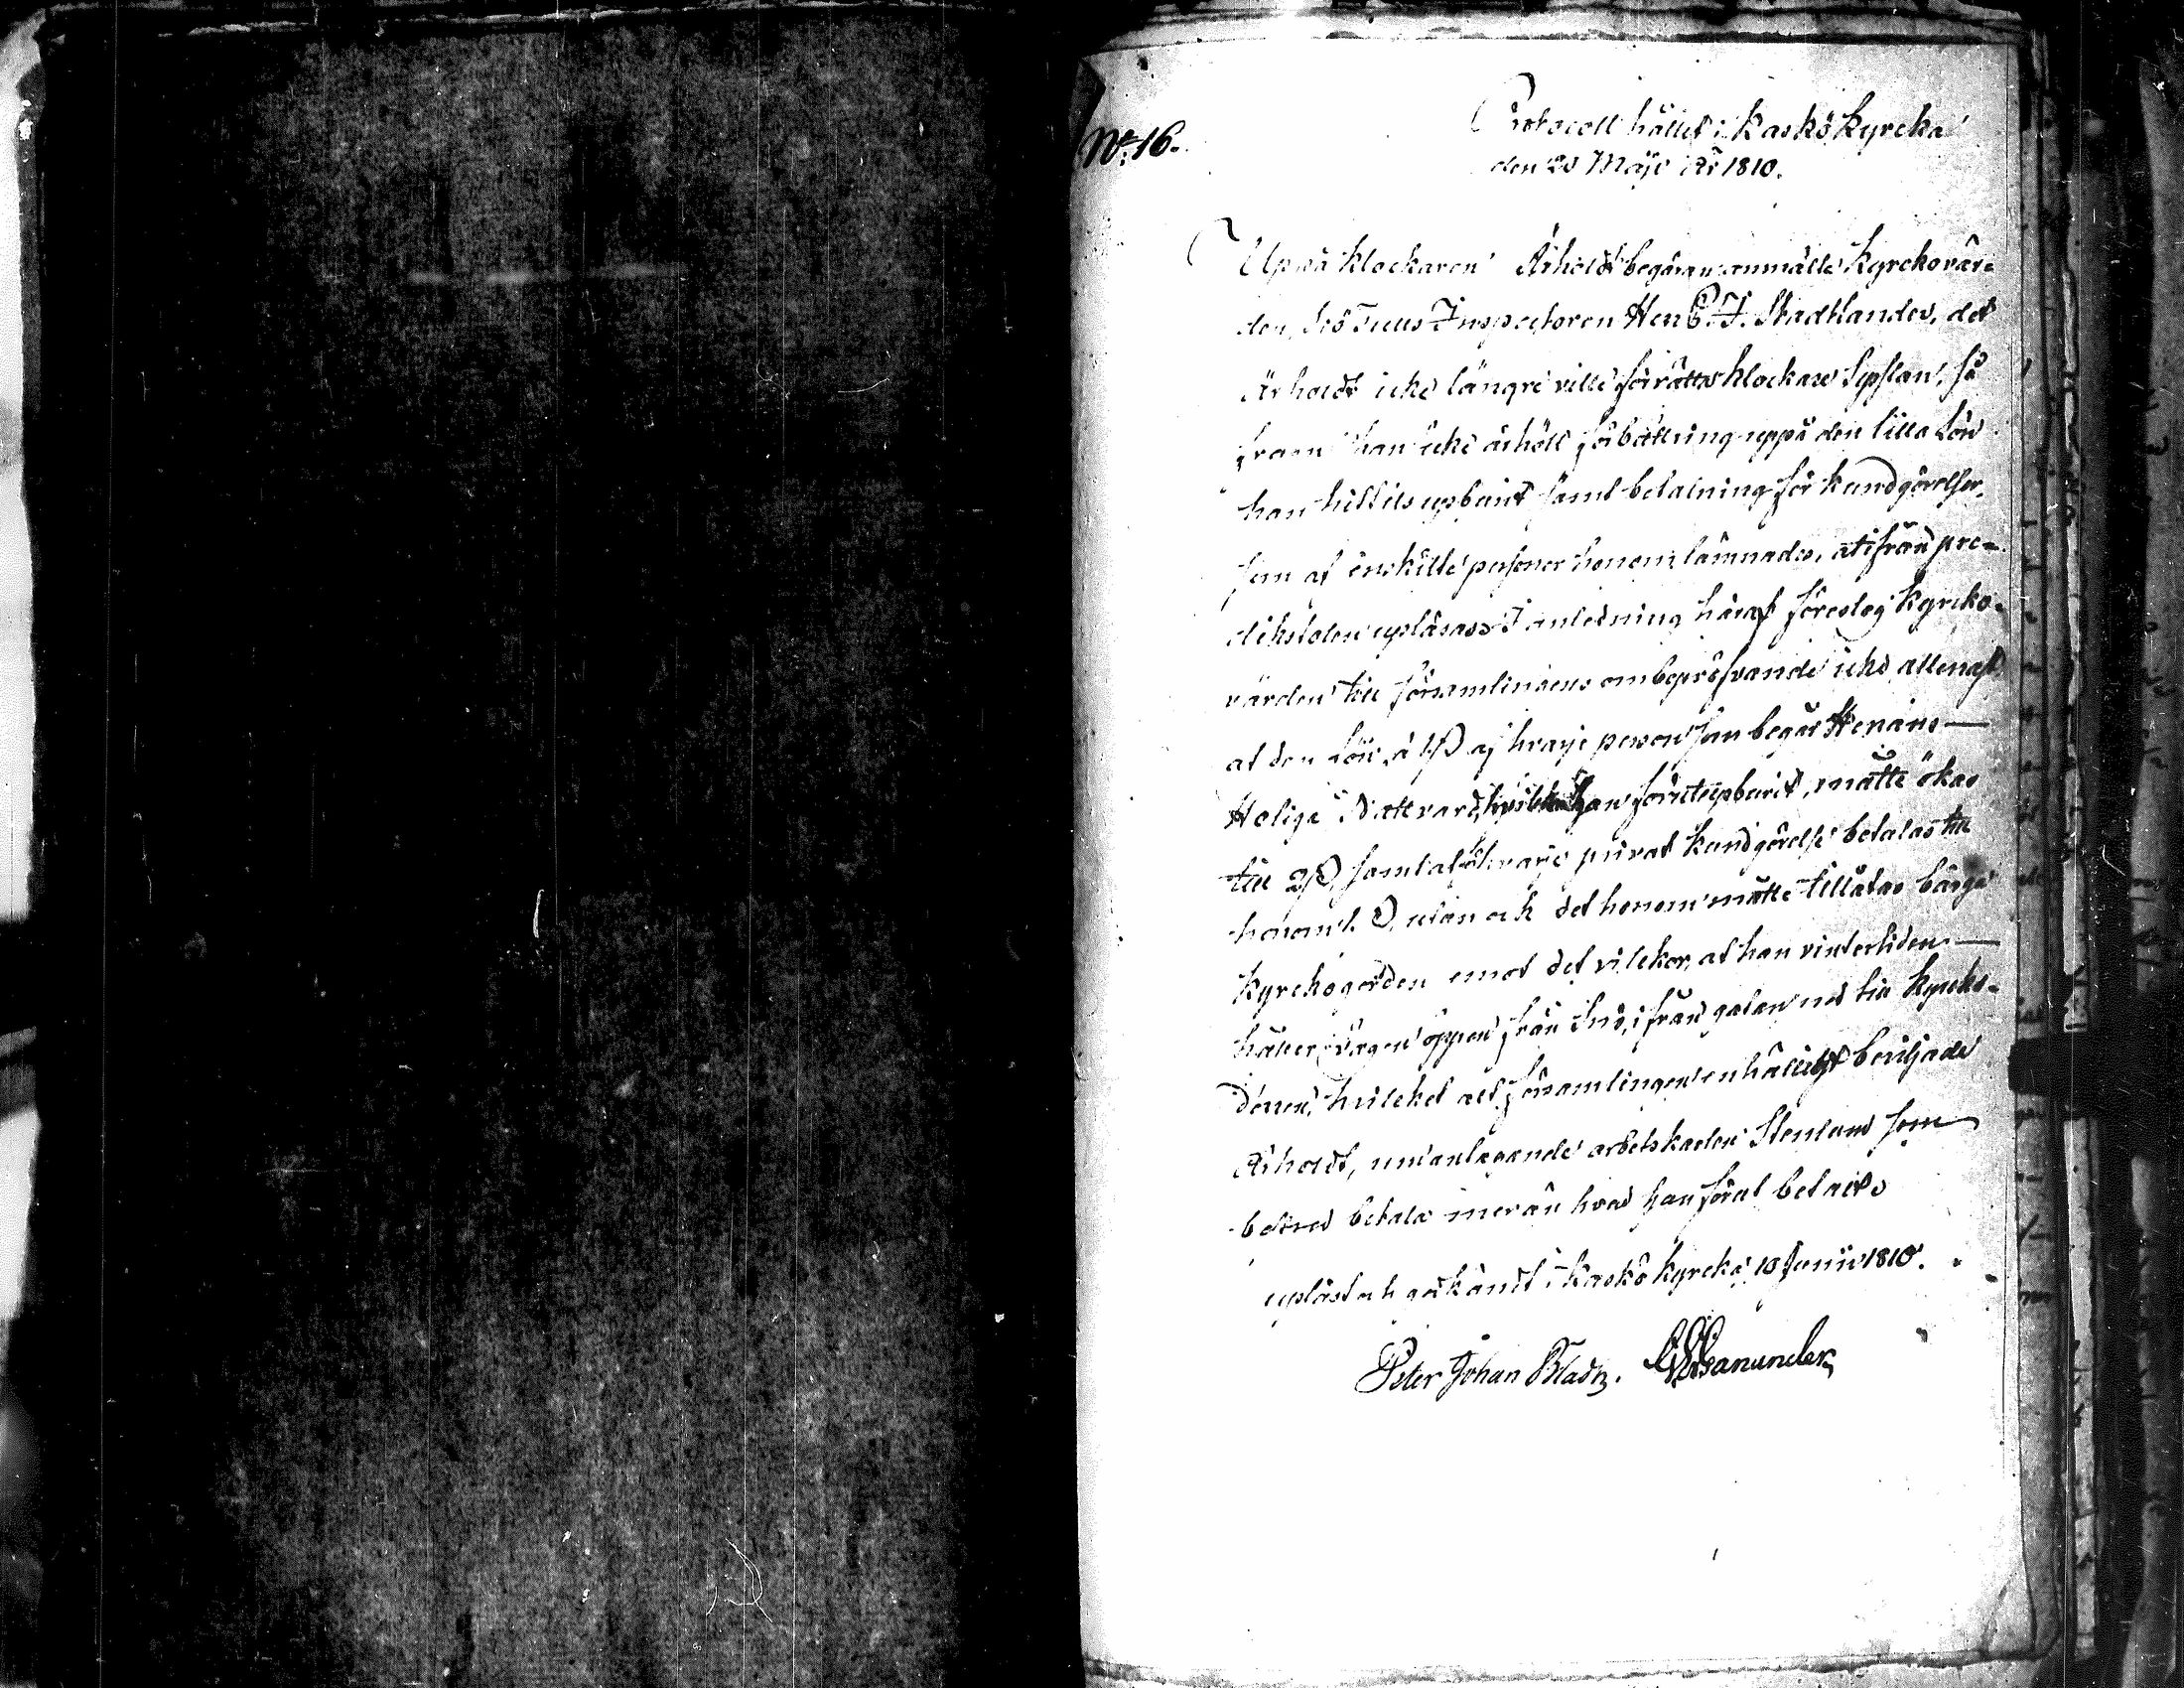 No: 16.
Protocoll hållet i Kaskö Kyrcka
den 20 Maji År 1810.
Uppå Klockaren Årholdt begäran anmälte Kyrckovär-
den, Siö Tulls Inspectoren Herr C. J. Stadtlander, det
Årholdt icke längre ville förrätta Klockare Sysslan, så
fram han icke erhöll förbättring uppå den lilla Lön
han hittils upburit samt betalning för kundgörelser,
som af enskillte personer honom lämnades, at ifrån pre-
dikstolen upläsas. I anledning häraf föreslog Kyrcko-
värden till församlingens ombepröfvande icke allenast
at den Lön, à 1 ß af hvarje person som begår Herrans
Heliga Nattvard, hvilken han förut upburit, måtte ökas
till 2 ß, samt at för hvarje privat kundgörelse betalas till
honom 1. ß, utan ock det honom måtte tillåtas bärga
Kyrckogården emot det vilckor, at han vintertiden
håller vägen öppen från snö, ifrån gatan ned till Kyrcko-
dörren, hvilcket alt församlingen enhälligt beviljade
Årholdt, undantagande arbetskarlen Stenlund som
bestred betala mer än hvad han förut betalt.
upläst och godkändt i Kaskö Kyrcka, 10 Junii 1810.
Peter Johan Bladh.